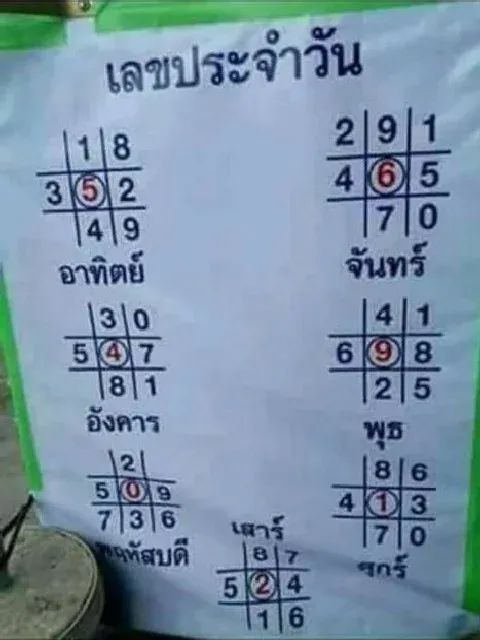 เลขประจำวัน
1 8
3 5 2
4 9
อาทิตย์
2 9 1
4 6 5
7 0
จันทร์
3 0
5 4 7
8 1
อังคาร
4 1
6 9 8
2 5
พุธ
2
5 0 9
7 3 6
พฤหัสบดี
8 6
4 1 3
7 0
ศุกร์
เสาร์
8 7
5 2 4
1 6